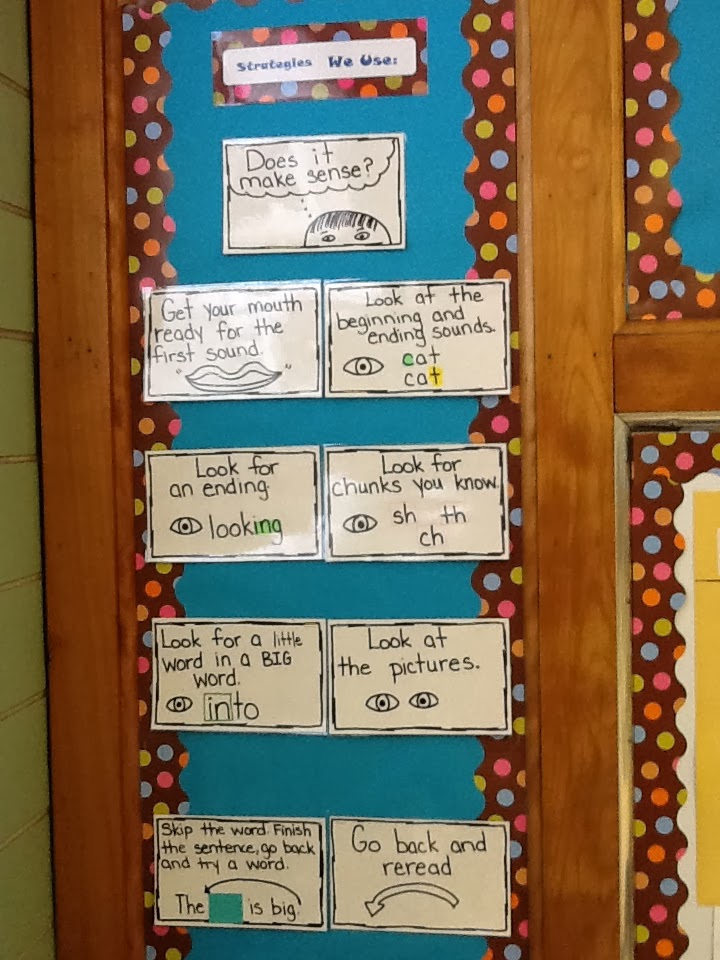 Strategies We Use:
Does it
make sense?
Get your mouth
ready for the
first sound.
Look at the
beginning and
ending sounds.
cat
cat
Look for
an ending.
looking
Look for
chunks you know.
sh th
ch
Look for a little
word in a BIG
word.
into
Look at
the pictures.
Skip the word. Finish
the sentence, go back
and try a word.
The is big.
Go back and
reread